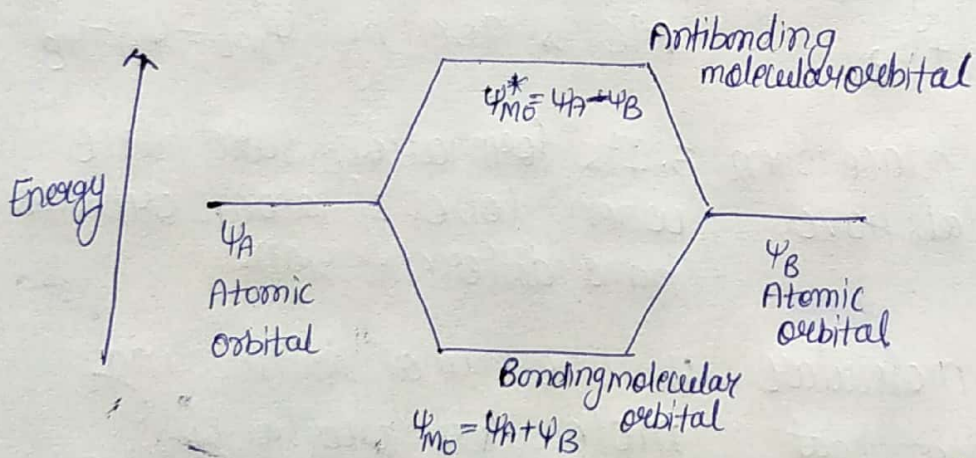 Antibonding
molecular orbital
ψ*MO = ψA - ψB
Energy
ψA
Atomic
orbital
ψB
Atomic
orbital
Bonding molecular
orbital
ψMO = ψA + ψB